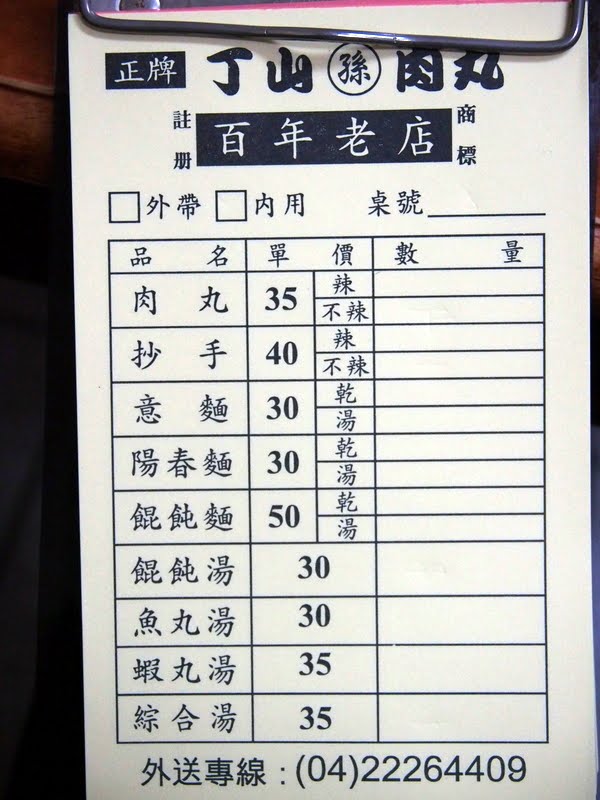 正牌 丁山 孫 肉丸
註册 百年老店 商標
外帶 内用 桌號
品名 單價 數量
肉丸 35 辣
不辣
抄手 40 辣
不辣
意麵 30 乾
湯
陽春麵 30 乾
湯
餛飩麵 50 乾
湯
餛飩湯 30
魚丸湯 30
蝦丸湯 35
綜合湯 35
外送專線:(04)22264409